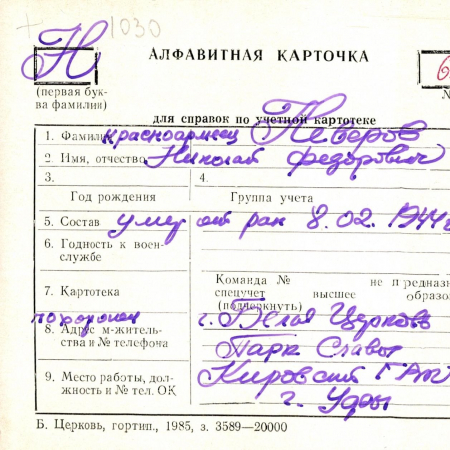 1030
Н
АЛФАВИТНАЯ КАРТОЧКА
6
(первая бук-
ва фамилии)
№
для справок по учетной картотеке
1. Фамилия красноармеец Неверов
2. Имя, отчество Николай Федорович
3.
4.
Год рождения
Группа учета
5. Состав умер от ран 8.02.1944г
6. Годность к воен-
службе
7. Картотека
Команда № не предназ
спецучет высшее образо
(подчеркнуть)
похоронен г. Белая Церковь
8. Адрес м-житель-
ства и № телефона
Парк Славы
9. Место работы, дол-
жность и № тел. ОК
Кировский
г.
Б. Церковь, гортип., 1985, з. 3589—20000